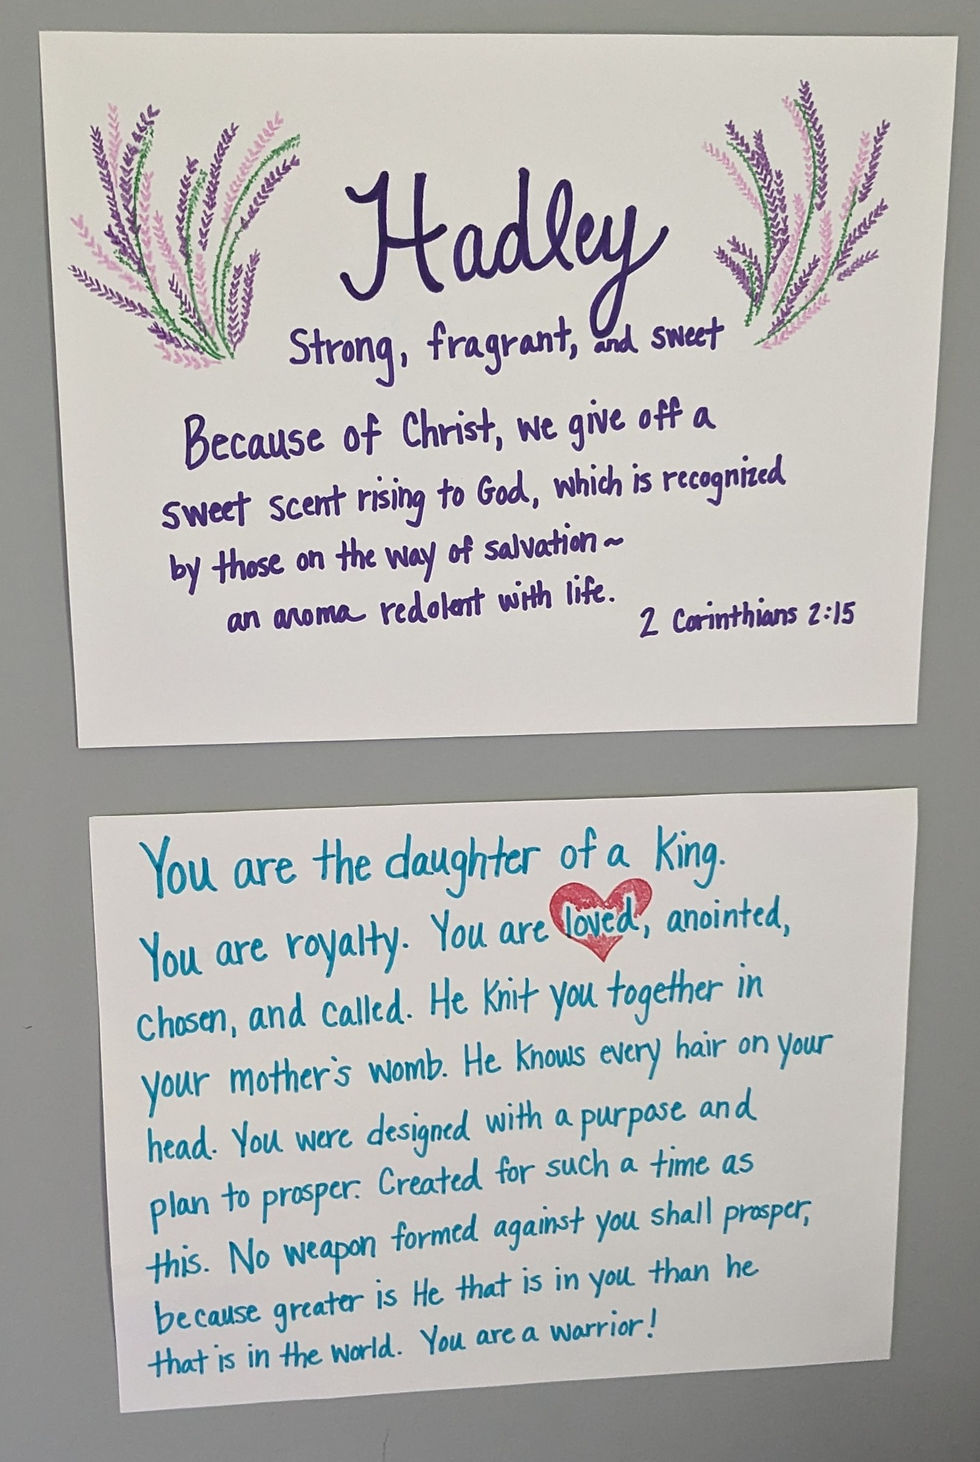 Hadley
Strong, fragrant, and sweet
Because of Christ, we give off a
sweet scent rising to God, which is recognized
by those on the way of salvation~
an aroma redolent with life.
2 Corinthians 2:15
You are the daughter of a King.
You are royalty. You are loved, anointed,
chosen, and called. He knit you together in
your mother's womb. He knows every hair on your
head. You were designed with a purpose and
plan to prosper. Created for such a time as
this. No weapon formed against you shall prosper,
because greater is He that is in you than he
that is in the world. You are a warrior!